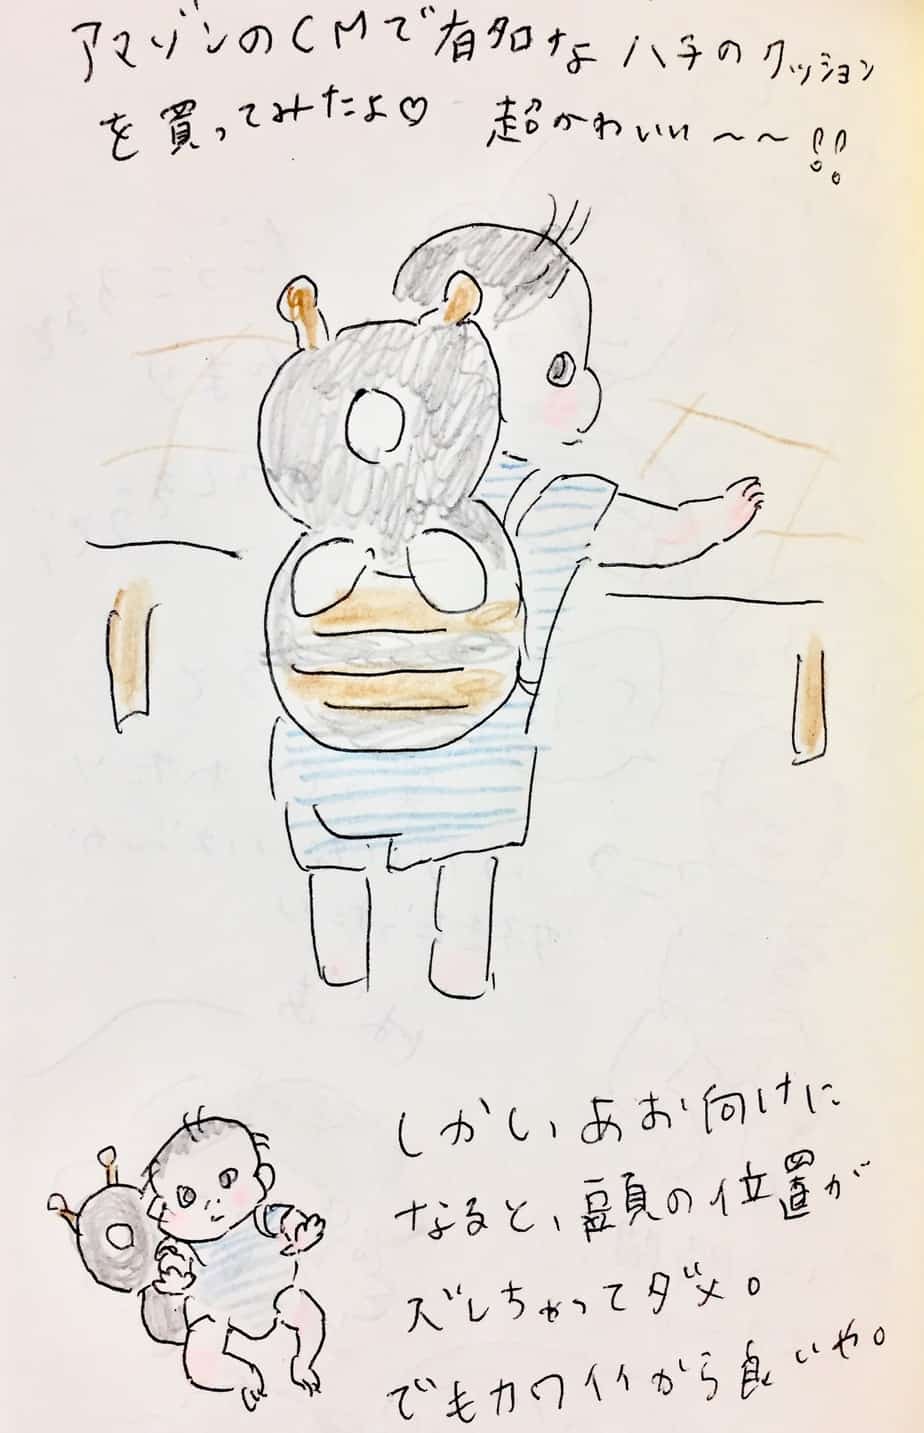 アマゾンのCMで有名なハチのクッション
を買ってみたよ♡ 超かわいい〜〜!!
しかし、あお向けに
なると、頭の位置が
ズレちゃってダメ。
でもカワイイから良いや。